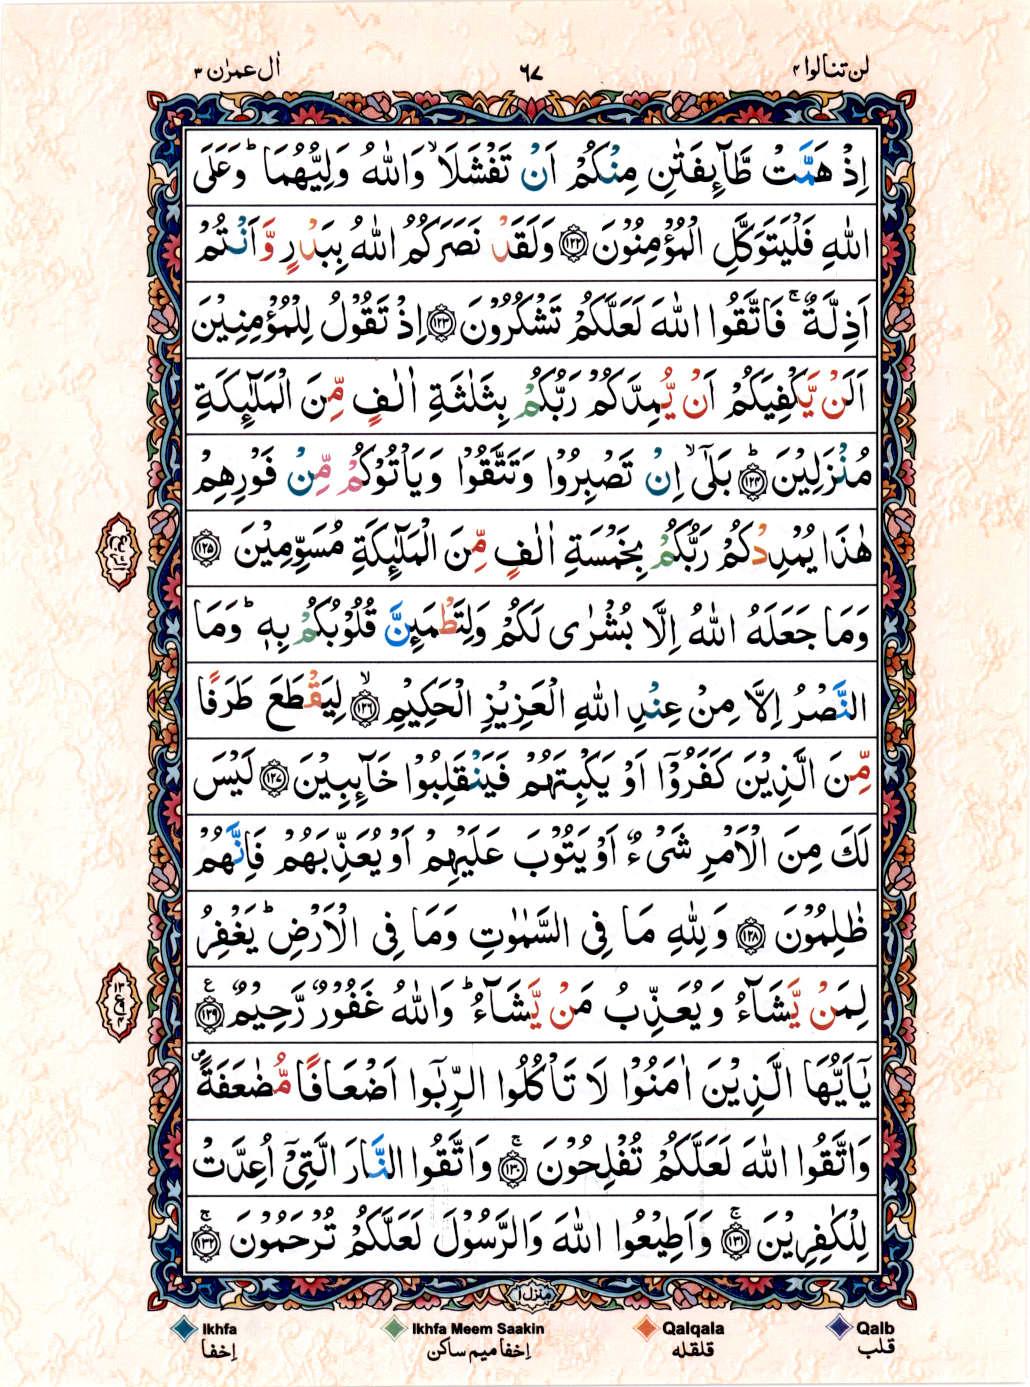 لن تنالوا ۴
٦٧
اٰل عمرٰن ۳
اِذْ هَمَّتْ طَّآئِفَتٰنِ مِنْكُمْ اَنْ تَفْشَلَا ۙ وَاللّٰهُ وَلِيُّهُمَا ؕ وَعَلَى
اللّٰهِ فَلْيَتَوَكَّلِ الْمُؤْمِنُوْنَ ﴿۱۲۲﴾ وَلَقَدْ نَصَرَكُمُ اللّٰهُ بِبَدْرٍ وَّاَنْتُمْ
اَذِلَّةٌ ۚ فَاتَّقُوا اللّٰهَ لَعَلَّكُمْ تَشْكُرُوْنَ ﴿۱۲۳﴾ اِذْ تَقُوْلُ لِلْمُؤْمِنِيْنَ
اَلَنْ يَّكْفِيَكُمْ اَنْ يُّمِدَّكُمْ رَبُّكُمْ بِثَلٰثَةِ اٰلٰفٍ مِّنَ الْمَلٰٓئِكَةِ
مُنْزَلِيْنَ ؕ ﴿۱۲۴﴾ بَلٰٓى ۙ اِنْ تَصْبِرُوْا وَتَتَّقُوْا وَيَاْتُوْكُمْ مِّنْ فَوْرِهِمْ
هٰذَا يُمْدِدْكُمْ رَبُّكُمْ بِخَمْسَةِ اٰلٰفٍ مِّنَ الْمَلٰٓئِكَةِ مُسَوِّمِيْنَ ﴿۱۲۵﴾
الربع
وَمَا جَعَلَهُ اللّٰهُ اِلَّا بُشْرٰى لَكُمْ وَلِتَطْمَئِنَّ قُلُوْبُكُمْ بِهٖ ؕ وَمَا
النَّصْرُ اِلَّا مِنْ عِنْدِ اللّٰهِ الْعَزِيْزِ الْحَكِيْمِ ۙ ﴿۱۲۶﴾ لِيَقْطَعَ طَرَفًا
مِّنَ الَّذِيْنَ كَفَرُوْٓا اَوْ يَكْبِتَهُمْ فَيَنْقَلِبُوْا خَآئِبِيْنَ ﴿۱۲۷﴾ لَيْسَ
لَكَ مِنَ الْاَمْرِ شَىْءٌ اَوْ يَتُوْبَ عَلَيْهِمْ اَوْ يُعَذِّبَهُمْ فَاِنَّهُمْ
ظٰلِمُوْنَ ﴿۱۲۸﴾ وَلِلّٰهِ مَا فِى السَّمٰوٰتِ وَمَا فِى الْاَرْضِ ؕ يَغْفِرُ
لِمَنْ يَّشَآءُ وَيُعَذِّبُ مَنْ يَّشَآءُ ؕ وَاللّٰهُ غَفُوْرٌ رَّحِيْمٌ ﴿۱۲۹﴾ ع
يٰٓاَيُّهَا الَّذِيْنَ اٰمَنُوْا لَا تَاْكُلُوا الرِّبٰٓوا اَضْعَافًا مُّضٰعَفَةً ۪
وَاتَّقُوا اللّٰهَ لَعَلَّكُمْ تُفْلِحُوْنَ ۚ ﴿۱۳۰﴾ وَاتَّقُوا النَّارَ الَّتِىْٓ اُعِدَّتْ
لِلْكٰفِرِيْنَ ۚ ﴿۱۳۱﴾ وَاَطِيْعُوا اللّٰهَ وَالرَّسُوْلَ لَعَلَّكُمْ تُرْحَمُوْنَ ۚ ﴿۱۳۲﴾
منزل ۱
Ikhfa
Ikhfa Meem Saakin
Qalqala
Qalb
اِخفا
اِخفا میم ساکن
قلقله
قلب